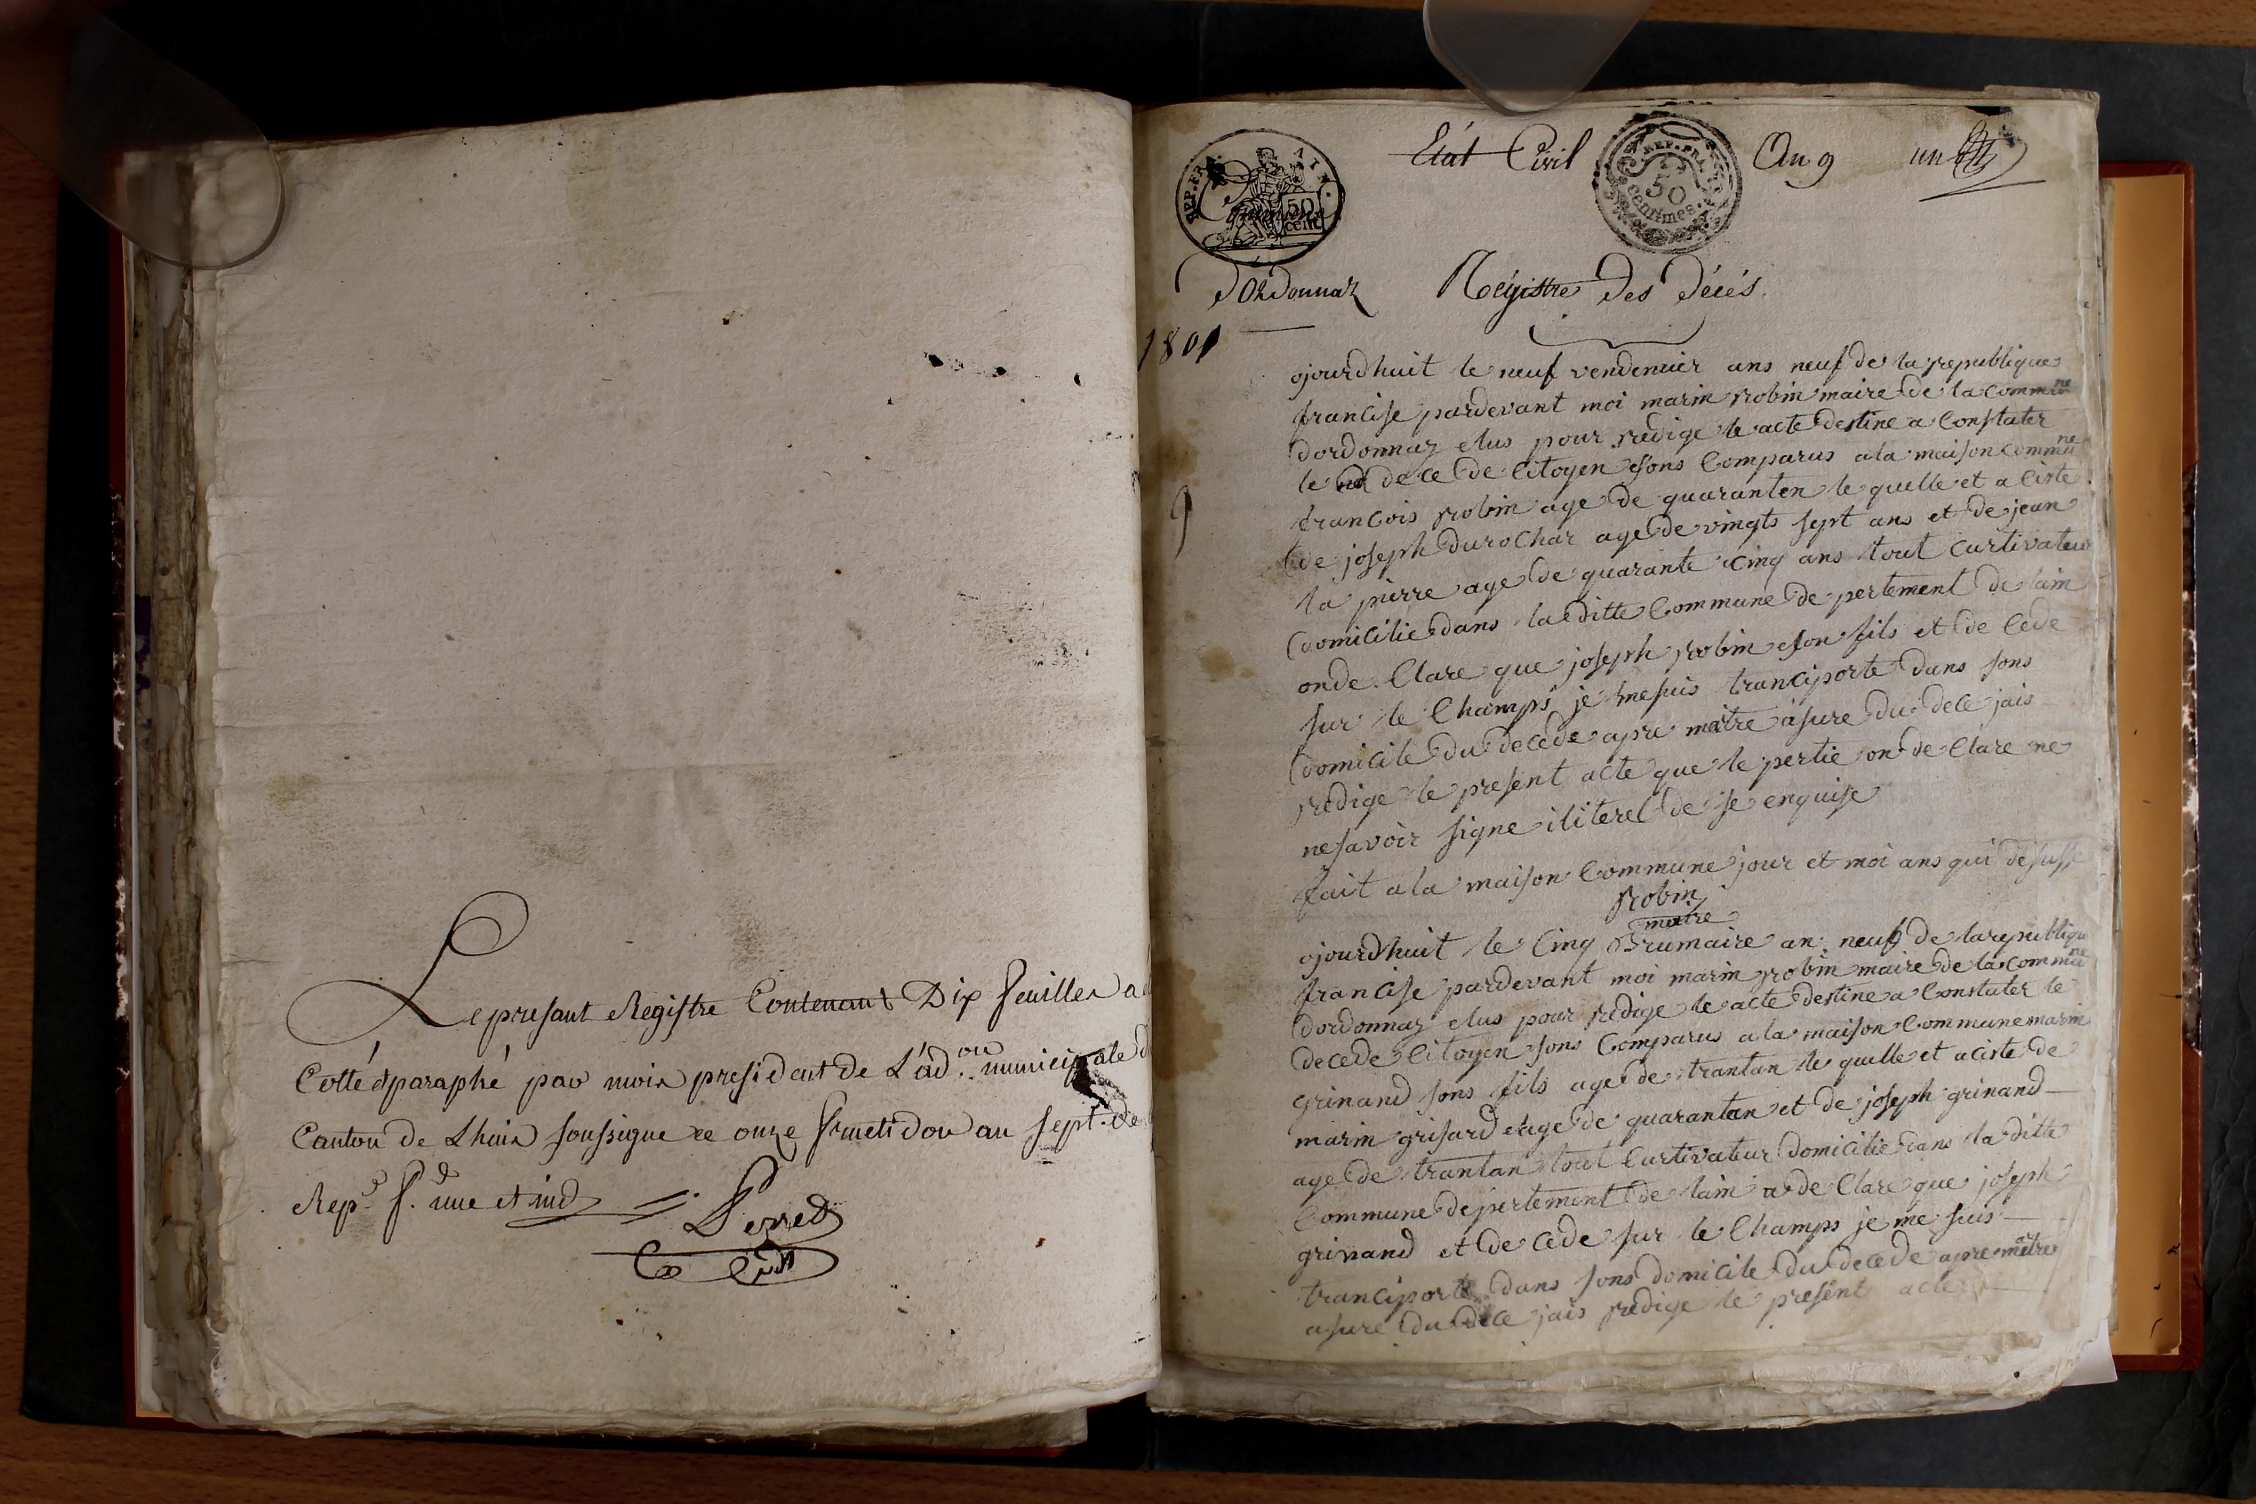 Le presant Registre Contenant Dix feuilles a
Cotté & paraphé par moi president de L'ad.on municipale d
Canton de Lhuis soussigné ce onze fructidor an sept. de
Rep.e f. une et ind
Perred
Etat Civil An 9 un
REP. FRA. AIN. 50 cent
REP. FRA. 50 centimes
Commune
dOrdonnaz Régistre des décés.
1801
ojourdhuit le neuf vendemier ans neuf de la republique
francise pardevant moi marin robin maire de la commune
dordonnaz elus pour redige le acte destine a Constater
le dece de Citoyen sons Comparus a la maison commune
francois robin age de quaranten le quelle et a ciste
9
de joseph durochar age de vingts sept ans et de jean
la pierre age de quarante cinq ans tout curtivateur
domicilie dans la ditte Commune de pertement de lain
onde Clare que joseph robin son fils et de cede
sur le Champs je me suis tranciporte dans sons
domicile du decede apre maitre asure du dece jais
redige le present acte que le pertie on de Clare ne
ne savoir signe iliterel de se enquise
fait a la maison Commune jour et moi ans qui desuss
Robin
maire
ojourdhuit le Cinq Brumaire an neuf de la republique
francise pardevant moi marin robin maire de la commune
dordonnaz elus pour redige le acte destine a Constater le
decede Citoyen sons Comparus a la maison Commune marin
grinand sons fils age de trantan le quelle et a ciste de
marin grisard age de quarantan et de joseph grinand
age de trantan tout Curtivateur domicilie dans la ditte
Commune depertement de lain a de Clare que joseph
grinand et de cede sur le Champs je me suis
tranciporte dans sons domicile du decede apre mêtre
asure du dece jais redige le present acte